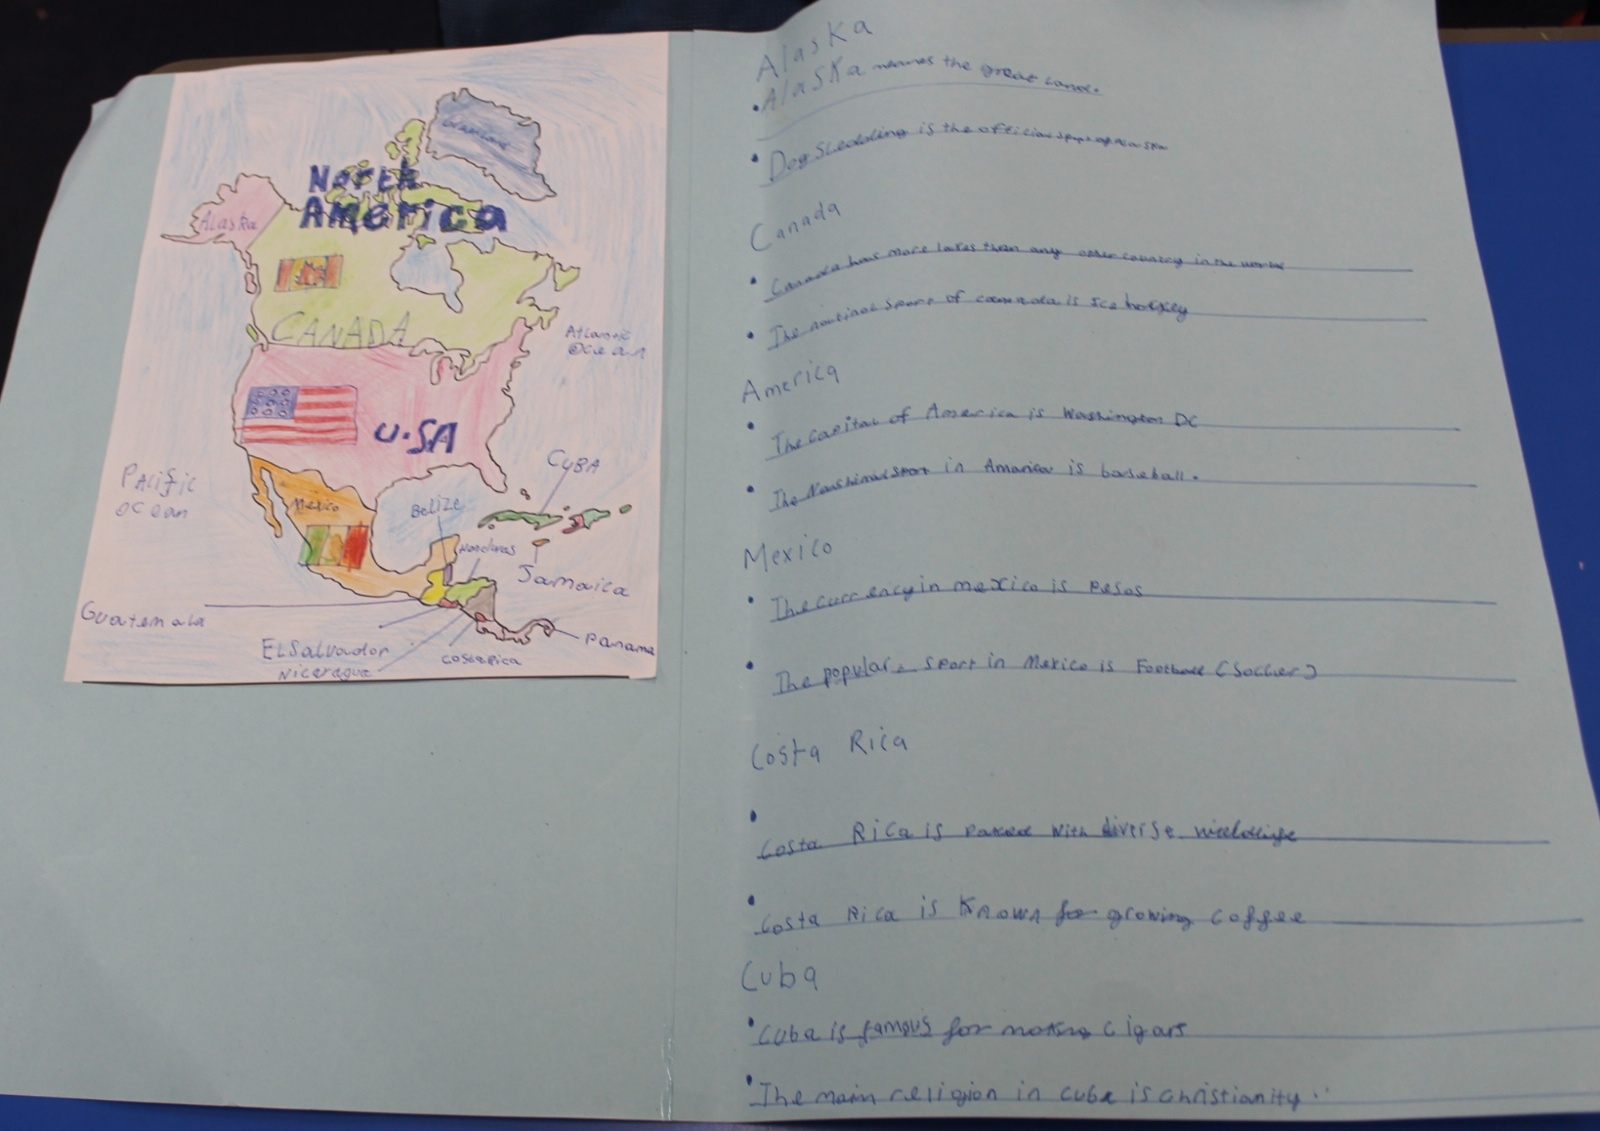 Greenland
North
America
Alaska
CANADA
Atlantic
Ocean
U.SA
Pacific
Ocean
CUBA
Mexico
Belize
Honduras
Jamaica
Guatemala
ElSalvador
Nicaragua
Costarica
Panama
Alaska
• Alaska means the great land.
• Dog Sledding is the official sport of Alaska
Canada
• Canada has more lakes than any other country in the world
• The national sport of canada is Ice hockey
America
• The capital of America is Washington DC
• The sport in America is baseball.
Mexico
• The currency in mexico is Pesos
• The popular sport in Mexico is Football (Soccer)
Costa Rica
• Costa Rica is Packed with diverse
• Costa Rica is Known for growing coffee
Cuba
• Cuba is famous for making cigars
• The main religion in cuba is christianity.